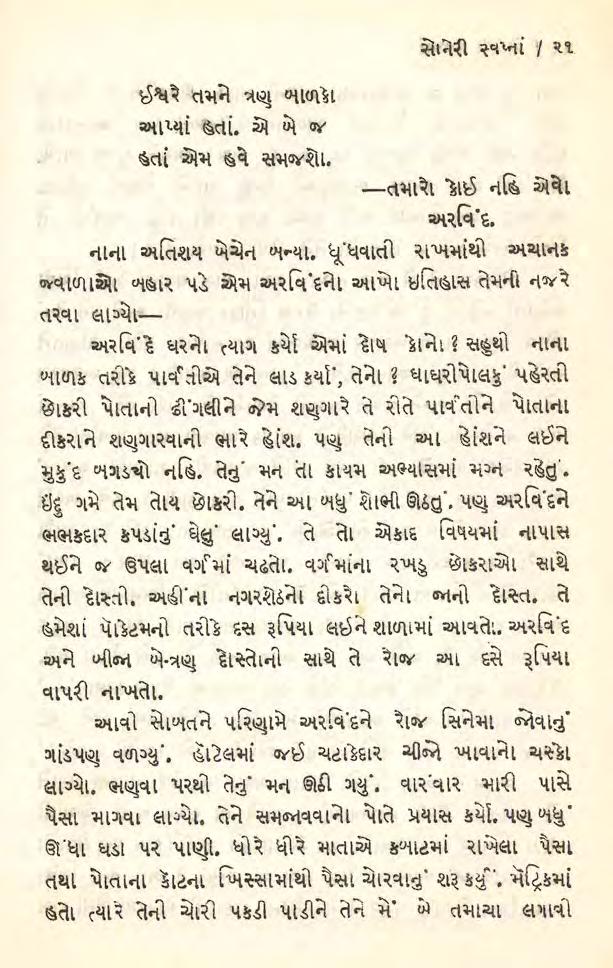 સોનેરી સ્વપ્નાં / ૨૧
ઈશ્વરે તમને ત્રણ બાળકો
આપ્યાં હતાં. એ બે જ
હતાં એમ હવે સમજશો.
—તમારો કોઈ નહિ એવો
અરવિંદ.
નાના અતિશય બેચેન બન્યા. ધૂંધવાતી રાખમાંથી અચાનક
જ્વાળાઓ બહાર પડે એમ અરવિંદનો આખો ઇતિહાસ તેમની નજરે
તરવા લાગ્યો—
અરવિંદે ઘરનો ત્યાગ કર્યો એમાં દોષ કોનો ? સહુથી નાના
બાળક તરીકે પાર્વતીએ તેને લાડ કર્યાં, તેનો ? ઘાઘરીપોલકું પહેરતી
છોકરી પોતાની ઢીંગલીને જેમ શણગારે તે રીતે પાર્વતીને પોતાના
દીકરાને શણગારવાની ભારે હોંશ. પણ તેની આ હોંશને લઈને
મુકુંદ બગડ્યો નહિ. તેનું મન તો કાયમ અભ્યાસમાં મગ્ન રહેતું.
ઇંદુ ગમે તેમ તોય છોકરી. તેને આ બધું શોભી ઊઠતું. પણ અરવિંદને
ભભકદાર કપડાંનું ઘેલું લાગ્યું. તે તો એકાદ વિષયમાં નાપાસ
થઈને જ ઉપલા વર્ગમાં ચઢતો. વર્ગમાંના રખડુ છોકરાઓ સાથે
તેની દોસ્તી. અહીંના નગરશેઠનો દીકરો તેનો જાની દોસ્ત. તે
હમેશાં પૉકેટમની તરીકે દસ રૂપિયા લઈને શાળામાં આવતો. અરવિંદ
અને બીજા બે-ત્રણ દોસ્તોની સાથે તે રોજ આ દસે રૂપિયા
વાપરી નાખતો.
આવી સોબતને પરિણામે અરવિંદને રોજ સિનેમા જોવાનું
ગાંડપણ વળગ્યું. હૉટેલમાં જઈ ચટાકેદાર ચીજો ખાવાનો ચસ્કો
લાગ્યો. ભણવા પરથી તેનું મન ઊઠી ગયું. વારંવાર મારી પાસે
પૈસા માગવા લાગ્યો. તેને સમજાવવાનો પોતે પ્રયાસ કર્યો. પણ બધું
ઊંધા ઘડા પર પાણી. ધીરે ધીરે માતાએ કબાટમાં રાખેલા પૈસા
તથા પોતાના કોટના ખિસ્સામાંથી પૈસા ચોરવાનું શરૂ કર્યું. મૅટ્રિકમાં
હતો ત્યારે તેની ચોરી પકડી પાડીને તેને મેં બે તમાચા લગાવી